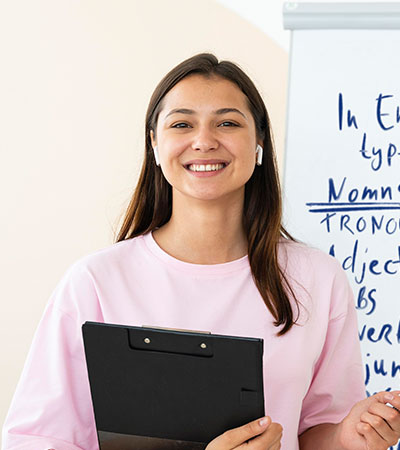 In En
typ
Nomns
PRONO
Adjec
bs
ver
jun